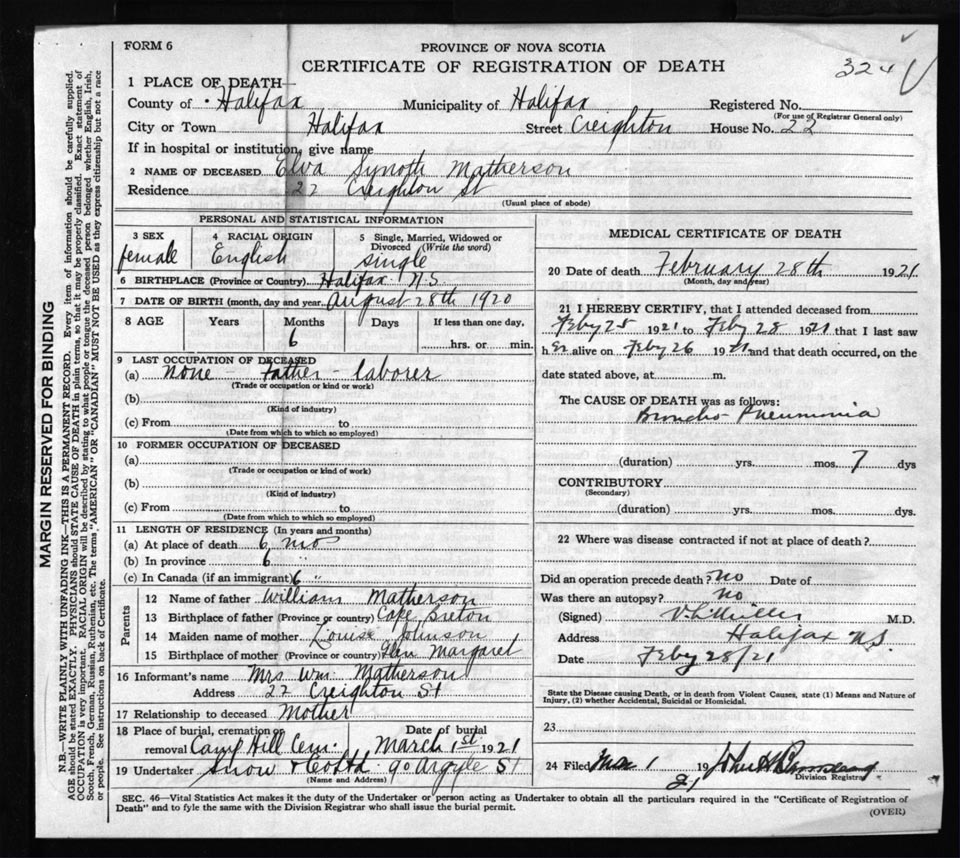 FORM 6
PROVINCE OF NOVA SCOTIA
CERTIFICATE OF REGISTRATION OF DEATH
324
1 PLACE OF DEATH—
County of Halifax Municipality of Halifax Registered No.
(For use of Registrar General only)
City or Town Halifax Street Creighton House No. 22
If in hospital or institution, give name
2 NAME OF DECEASED Elva Synoth Matherson
Residence 22 Creighton St
(Usual place of abode)
PERSONAL AND STATISTICAL INFORMATION
3 SEX 4 RACIAL ORIGIN 5 Single, Married, Widowed or Divorced (Write the word)
female English single
6 BIRTHPLACE (Province or Country). Halifax N.S.
7 DATE OF BIRTH (month, day and year. August 28th 1920
8 AGE Years Months Days If less than one day,
6 hrs. or min.
9 LAST OCCUPATION OF DECEASED
(a) None - Father - laborer
(Trade or occupation or kind of work)
(b)
(Kind of industry)
(c) From to
(Date from which to which so employed)
10 FORMER OCCUPATION OF DECEASED
(a)
(Trade or occupation or kind of work)
(b)
(Kind of industry)
(c) From to
(Date from which to which so employed)
11 LENGTH OF RESIDENCE (In years and months)
(a) At place of death 6 mos
(b) In province 6 "
(c) In Canada (if an immigrant) 6 "
Parents
12 Name of father William Matherson
13 Birthplace of father (Province or country) Cape Breton
14 Maiden name of mother Louise Johnson
15 Birthplace of mother (Province or country) Glen Margaret
16 Informant's name Mrs Wm. Matherson
Address 22 Creighton St
17 Relationship to deceased Mother
18 Place of burial, cremation or removal Camp Hill Cem. Date of burial March 1st 1921
19 Undertaker Snow & Co Ltd. 90 Argyle St
(Name and Address)
MEDICAL CERTIFICATE OF DEATH
20 Date of death February 28th 1921
(Month, day and year)
21 I HEREBY CERTIFY, that I attended deceased from
Feby 25 1921 to Feby 28 1921 that I last saw
her alive on Feby 26 1921 and that death occurred, on the
date stated above, at m.
The CAUSE OF DEATH was as follows:
Broncho-Pneumonia
(duration) yrs. mos. 7 dys
CONTRIBUTORY
(Secondary)
(duration) yrs. mos. dys.
22 Where was disease contracted if not at place of death?
Did an operation precede death? no Date of
Was there an autopsy? no
(Signed) V. L. Miller M.D.
Address Halifax N.S.
Date Feby 28/21
State the Disease causing Death, or in death from Violent Causes, state (1) Means and Nature of
Injury, (2) whether Accidental, Suicidal or Homicidal.
23
24 Filed Mar 1 1921 John
Division Registrar
SEC. 46—Vital Statistics Act makes it the duty of the Undertaker or person acting as Undertaker to obtain all the particulars required in the "Certificate of Registration of
Death" and to fyle the same with the Division Registrar who shall issue the burial permit.
(OVER)
MARGIN RESERVED FOR BINDING
N.B.—WRITE PLAINLY WITH UNFADING INK—THIS IS A PERMANENT RECORD. Every item of information should be carefully supplied.
AGE should be stated EXACTLY. PHYSICIANS should STATE CAUSE OF DEATH in plain terms, so that it may be properly classified. Exact statement of
OCCUPATION is very important. RACIAL ORIGIN will be described by stating to what people or tongue the deceased person belonged whether English, Irish,
Scotch, French, German, Russian, Ruthenian, etc. The terms "AMERICAN" OR "CANADIAN" MUST NOT BE USED as they express citizenship but not a race
or people. See instructions on back of Certificate.